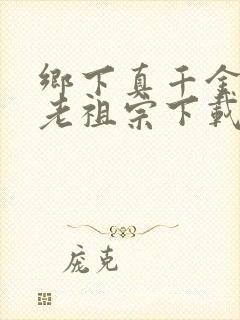 鄉下真千金
老祖宗下載
庞克